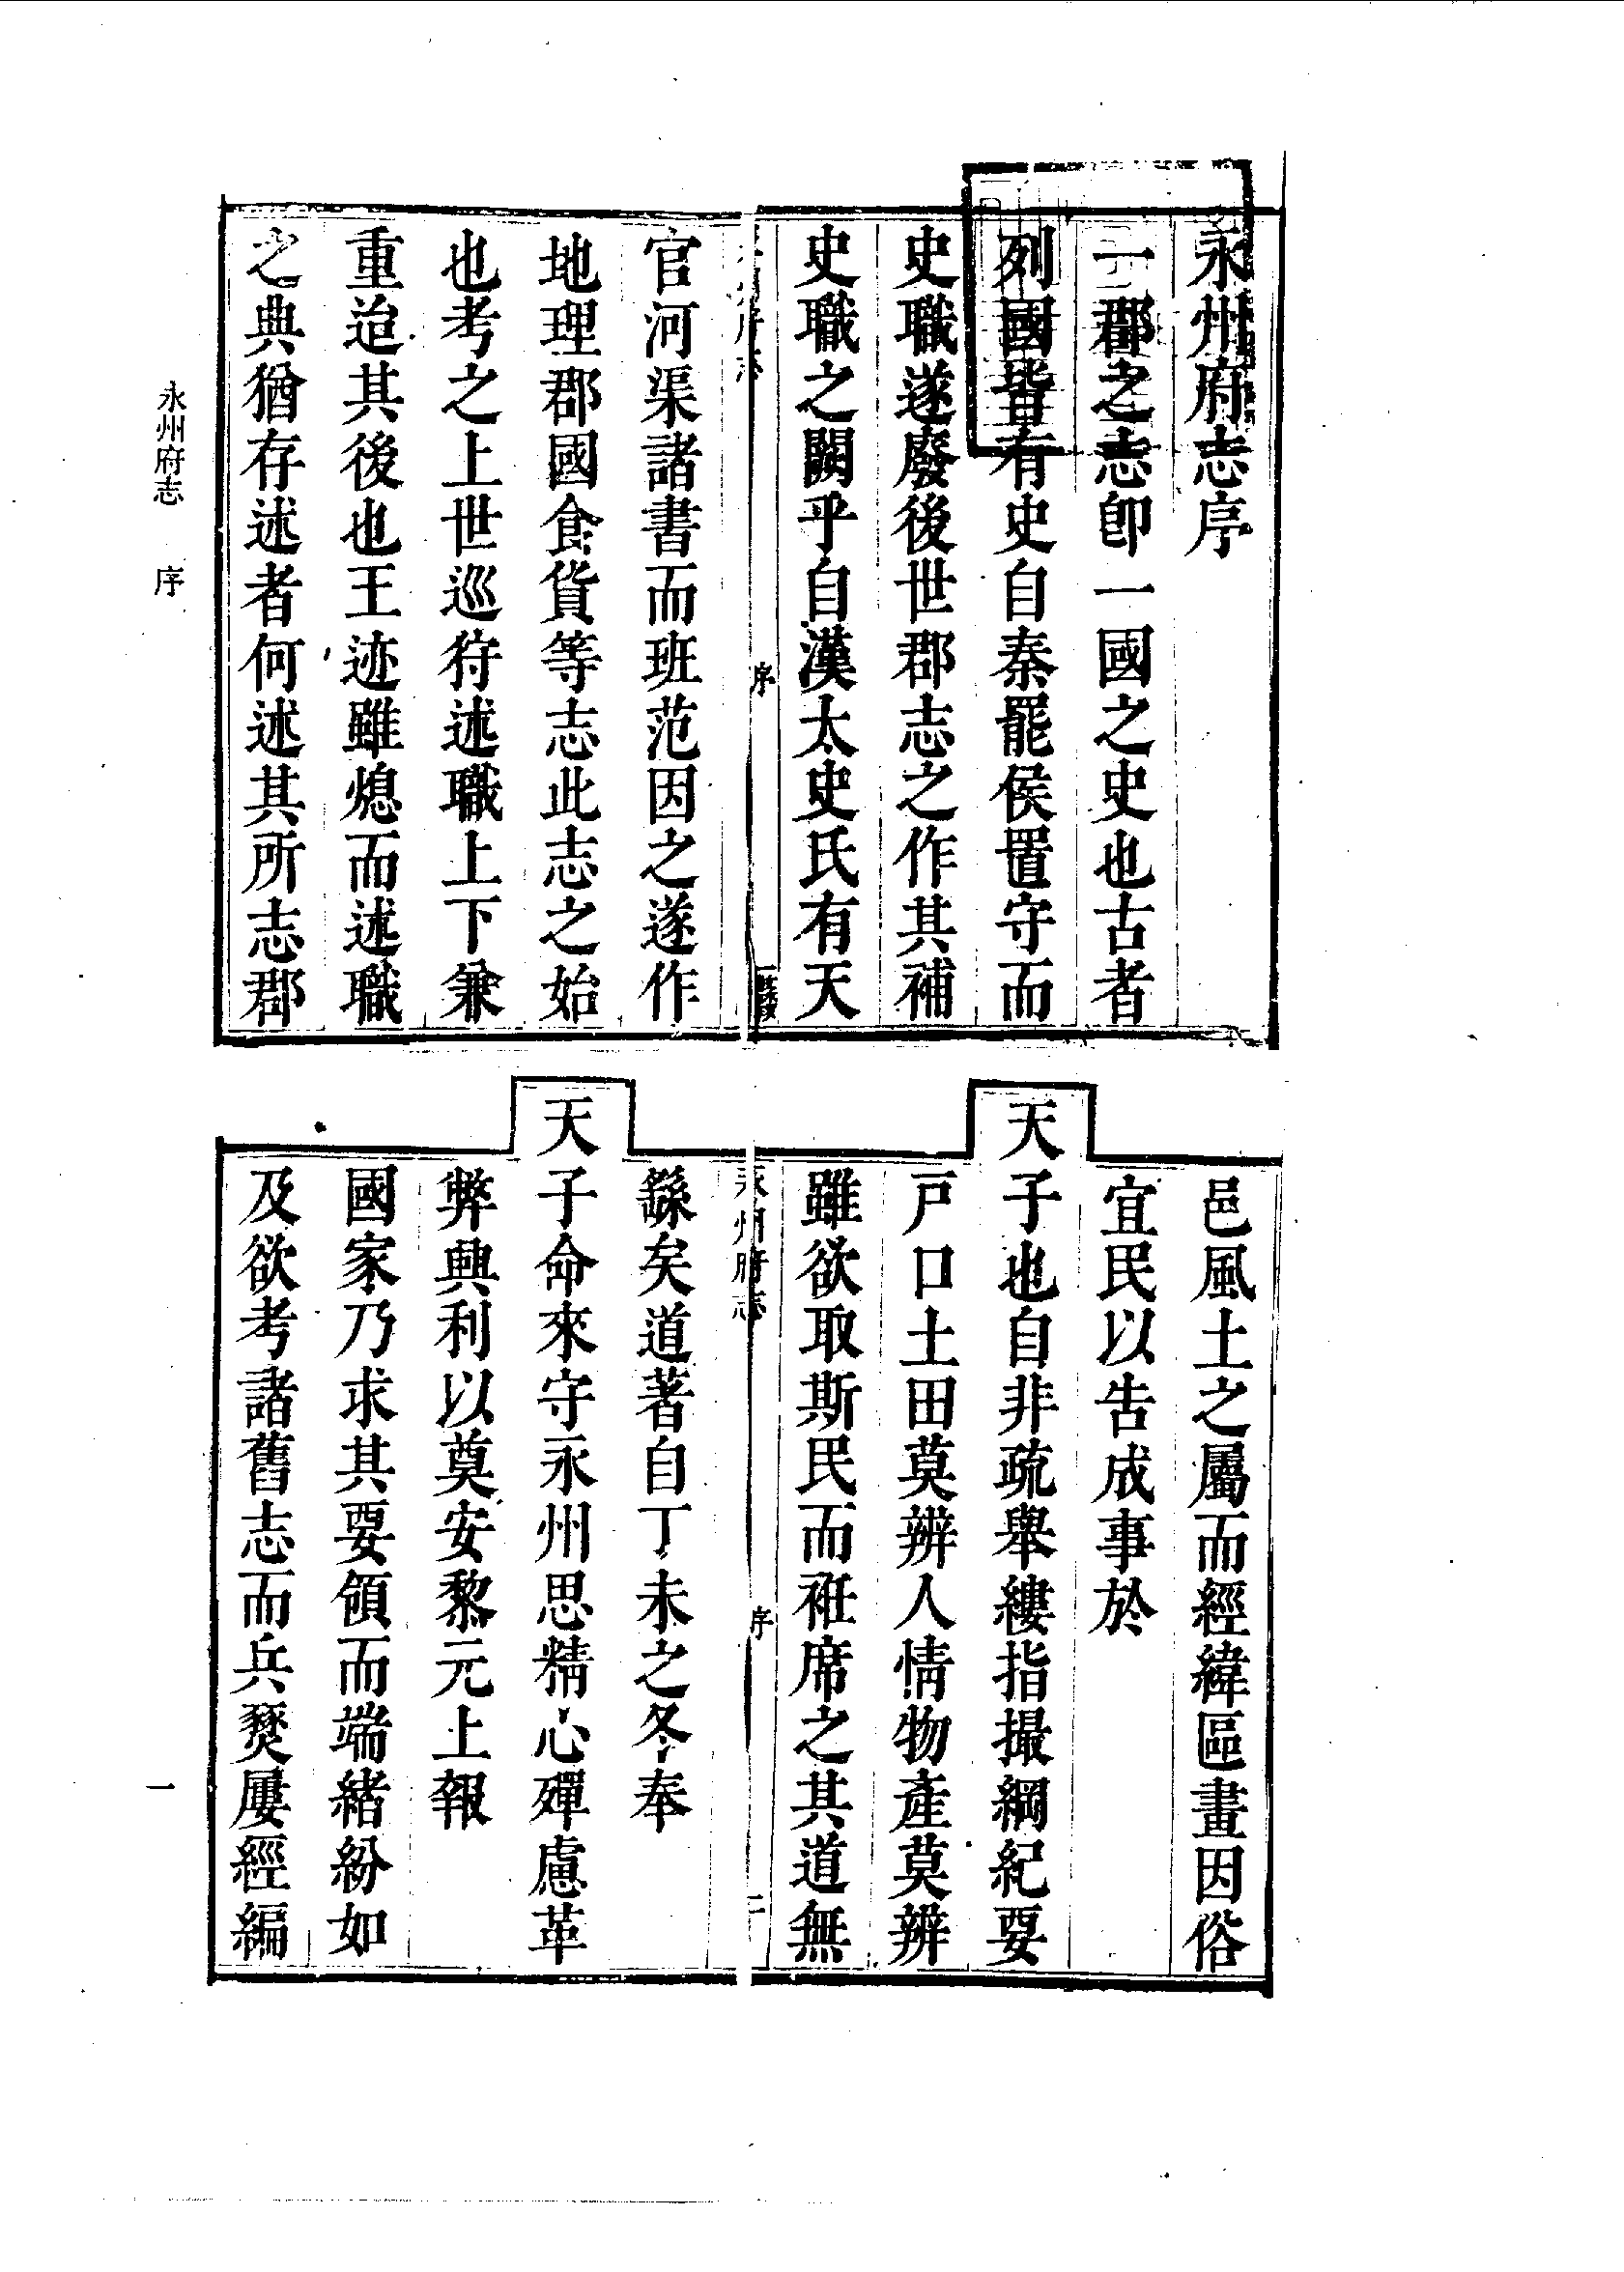 永州府志序
一郡之志卽一國之史也古者
列國皆有史自秦罷侯置守而
史職遂廢後世郡志之作其補
史職之闕乎自漢太史氏有天
序
官河渠諸書而班范因之遂作
地理郡國食貨等志此志之始
也考之上世巡狩述職上下兼
重迨其後也王迹雖熄而述職
之典猶存述者何述其所志郡
邑風土之屬而經緯區畫因俗
宜民以告成事於
天子也自非疏舉縷指撮綱紀要
戸口土田莫辨人情物產莫辨
雖欲取斯民而袵席之其道無
永州府志 序 二
繇矣道著自丁未之冬奉
天子命來守永州思精心殫慮革
弊興利以奠安黎元上報
國家乃求其要領而端緒紛如
及欲考諸舊志而兵燹屢經編
永州府志 序 一